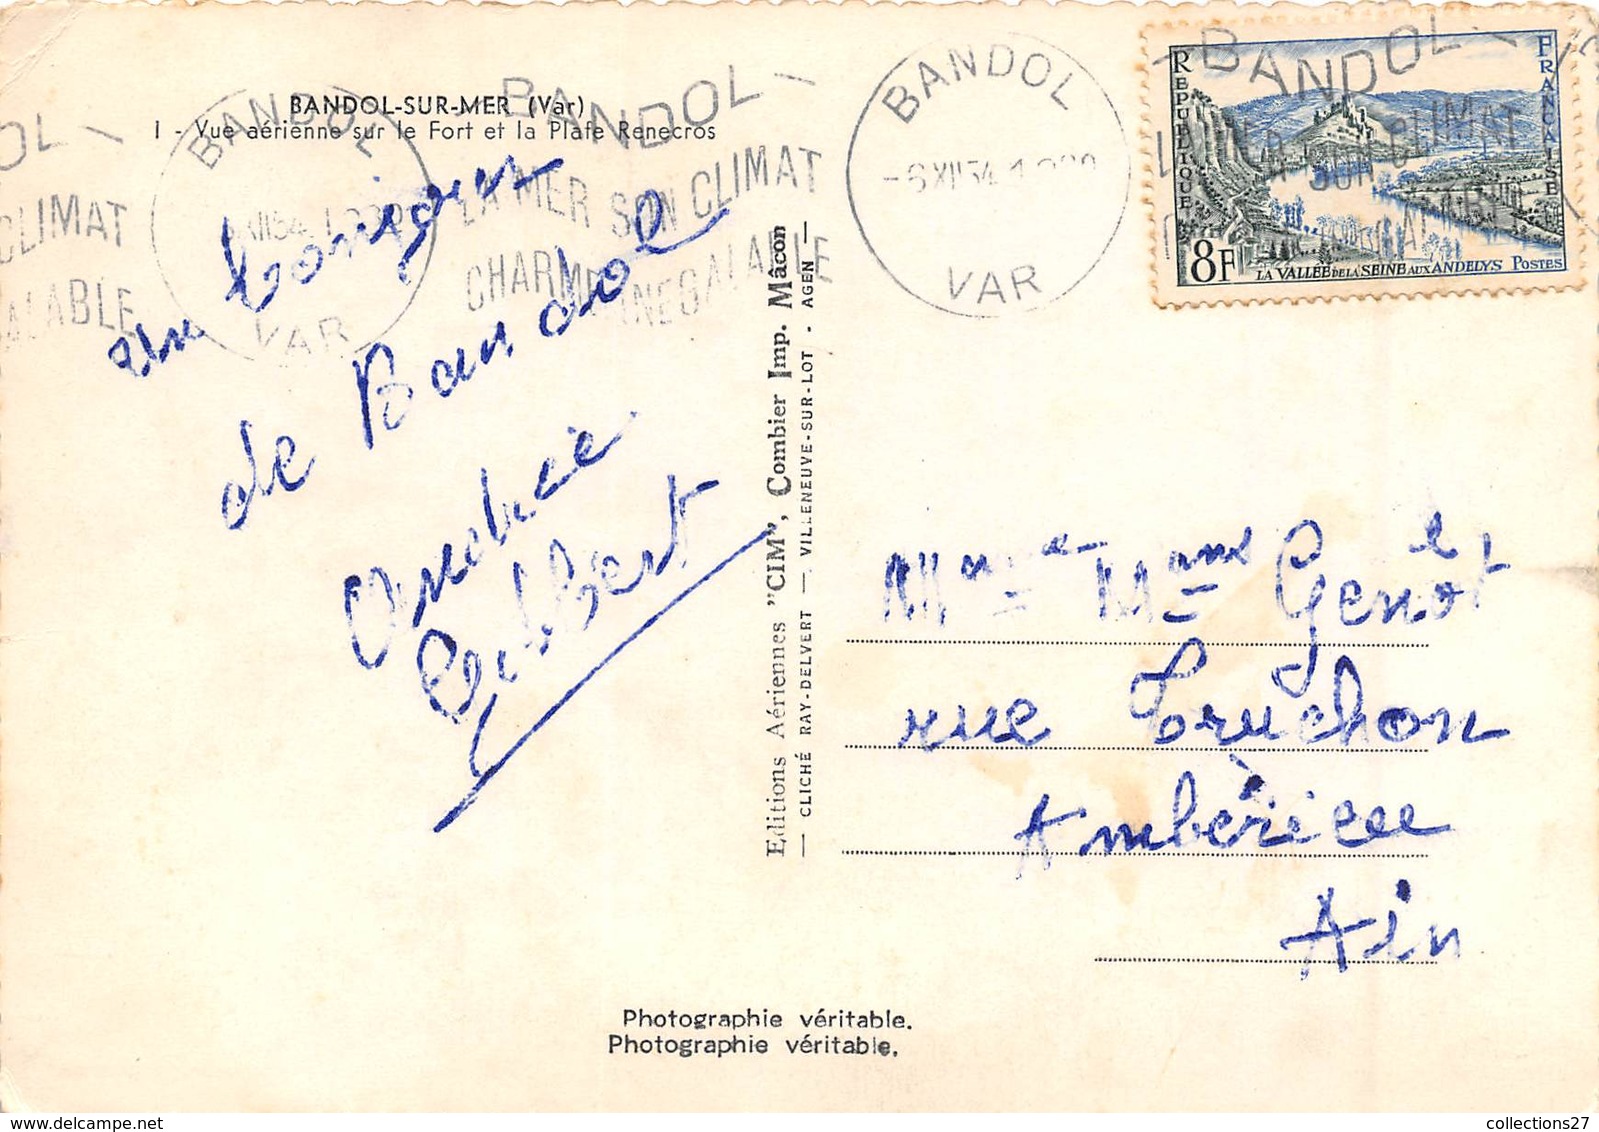 BANDOL-SUR-MER (Var)
1 - Vue aérienne sur le Fort et la Plage Renecros
BANDOL
-6 XII 54
VAR
BANDOL
LA MER SON CLIMAT
CHARME INEGALABLE
REPUBLIQUE FRANCAISE
8F
LA VALLÉE DE LA SEINE AUX ANDELYS POSTES
un bonjour
de Bandol
Editions Aériennes "CIM", Combier Imp. Mâcon
— CLICHÉ RAY-DELVERT — VILLENEUVE-SUR-LOT - AGEN —
Genot
rue Truchon
Ambérieu
Ain
Photographie véritable.
Photographie véritable.
collections27